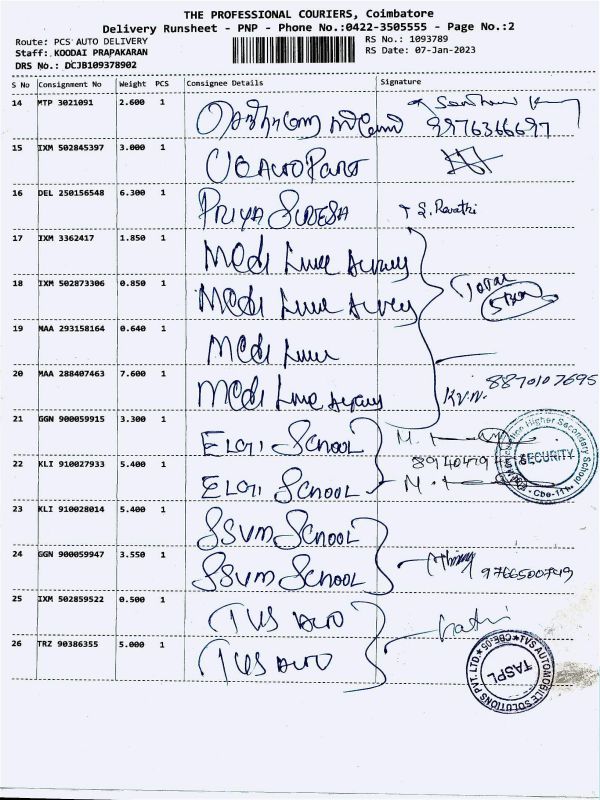 THE PROFESSIONAL COURIERS, Coimbatore
Delivery Runsheet - PNP - Phone No.:0422-3505555 - Page No.:2
Route: PCS AUTO DELIVERY
Staff: KOODAI PRAPAKARAN
DRS No.: DCJB109378902
RS No.: 1093789
RS Date: 07-Jan-2023
S No Consignment No Weight PCS Consignee Details Signature
14 MTP 3021091 2.600 1
9976366697
15 IXM 502845397 3.000 1 AUTO PART
16 DEL 250156548 6.300 1 PRIYA SURESH S. Revathi
17 IXM 3362417 1.850 1 Medi
18 IXM 502873306 0.850 1 Medi
Total
19 MAA 293158164 0.640 1 Medi
20 MAA 288407463 7.600 1 Medi
8870107695
K.V.N.
21 GGN 900059915 3.300 1 ELGI SCHOOL M.
22 KLI 910027933 5.400 1 ELGI SCHOOL M.
Higher Secondary School
SECURITY
23 KLI 910028014 5.400 1 SSVM SCHOOL
24 GGN 900059947 3.550 1 SSVM SCHOOL
25 IXM 502859522 0.500 1 TVS AUTO
26 TRZ 90386355 5.000 1 TVS AUTO
TVS AUTOMOBILE SOLUTIONS PVT. LTD. CBE-05
TASPL